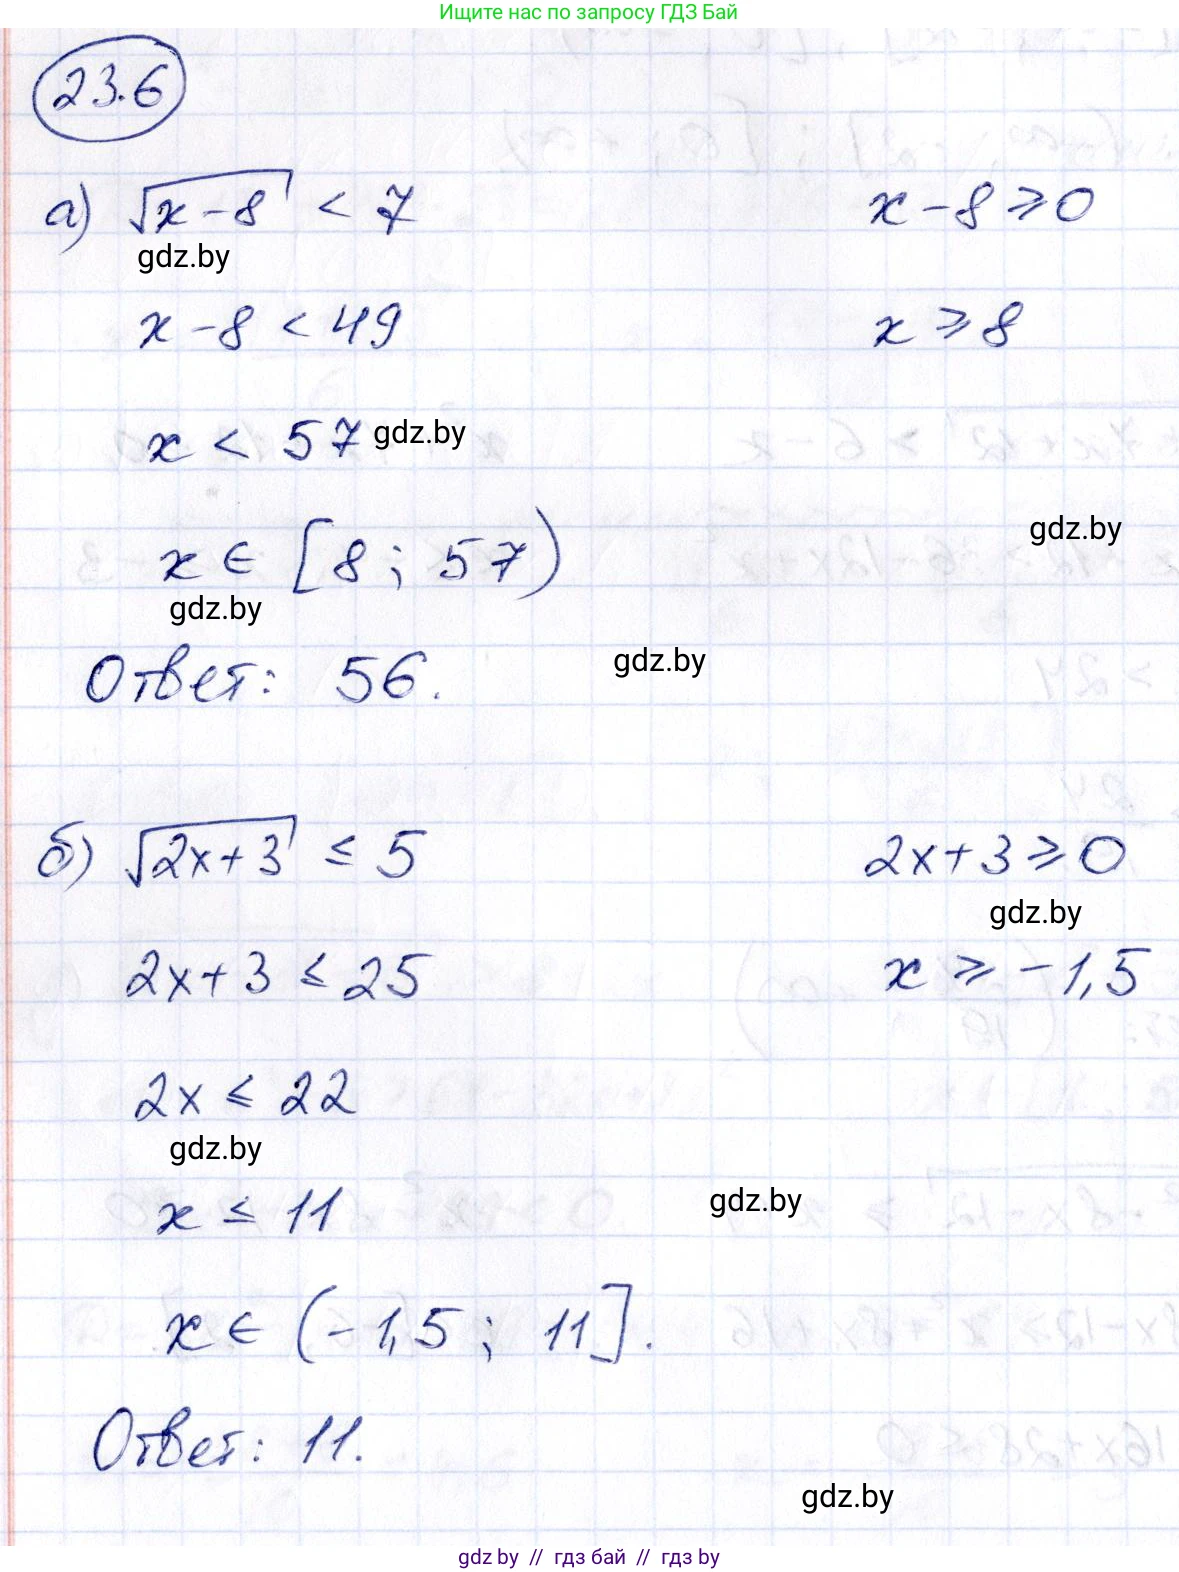 Ищите нас по запросу ГДЗ Бай
23.6
а) √x-8 < 7    x-8≥0
gdz.by
x-8 < 49    x ≥ 8
x < 57 gdz.by
gdz.by
x ∈ [8; 57)
gdz.by
Ответ: 56.    gdz.by
б) √2x+3 ≤ 5    2x+3≥0
gdz.by
2x+3 ≤ 25    x ≥ -1,5
2x ≤ 22
gdz.by
x ≤ 11    gdz.by
x ∈ (-1,5; 11].
Ответ: 11.
gdz.by
gdz by // гдз бай // гдз by